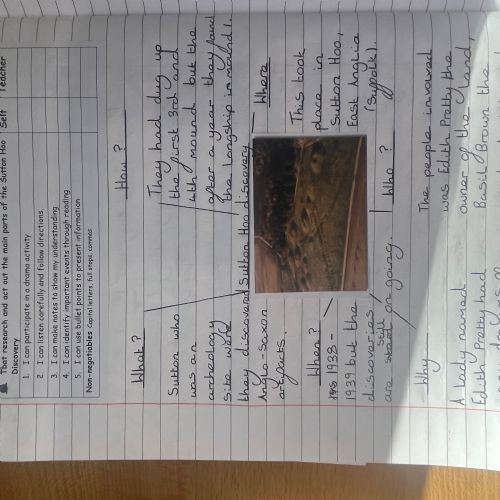 That research and act out the main parts of the Sutton Hoo Discovery
Self
Teacher
1. I can participate in a drama activity
2. I can listen carefully and follow directions.
3. I can make notes to show my understanding
4. I can identify important events through reading
5. I can use bullet points to present information
Non-negotiables: Capital letters, full stops, commas
How?
They had dug up
the first 3rd and
4th mound but the
after a year they found
the longship in mound 1.
What?
Sutton who
was an
archeology
site were
they discovered
Anglo-saxon
artifacts.
Sutton Hoo discovery
Where
This took
place in
Sutton Hoo,
East Anglia
(Suffolk).
When?
1938 -
1939 but the
discoveries
are still on going.
Who?
The people involved
was Edith Pretty the
owner of the land,
Basil Brown the
Why
A lady named
Edith Pretty had